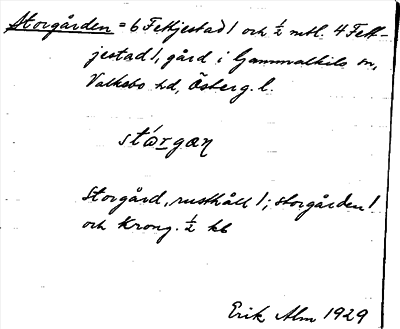 Storgården = 6 Fettjestad/ och ½ mtl. 4 Fett-
jestad/, gård i Gammalkils sn,
Valkebo hd, Österg. l.
stórgan
Storgård, rusthåll/; storgården/
och Krong. ½ hb
Erik Alm 1929